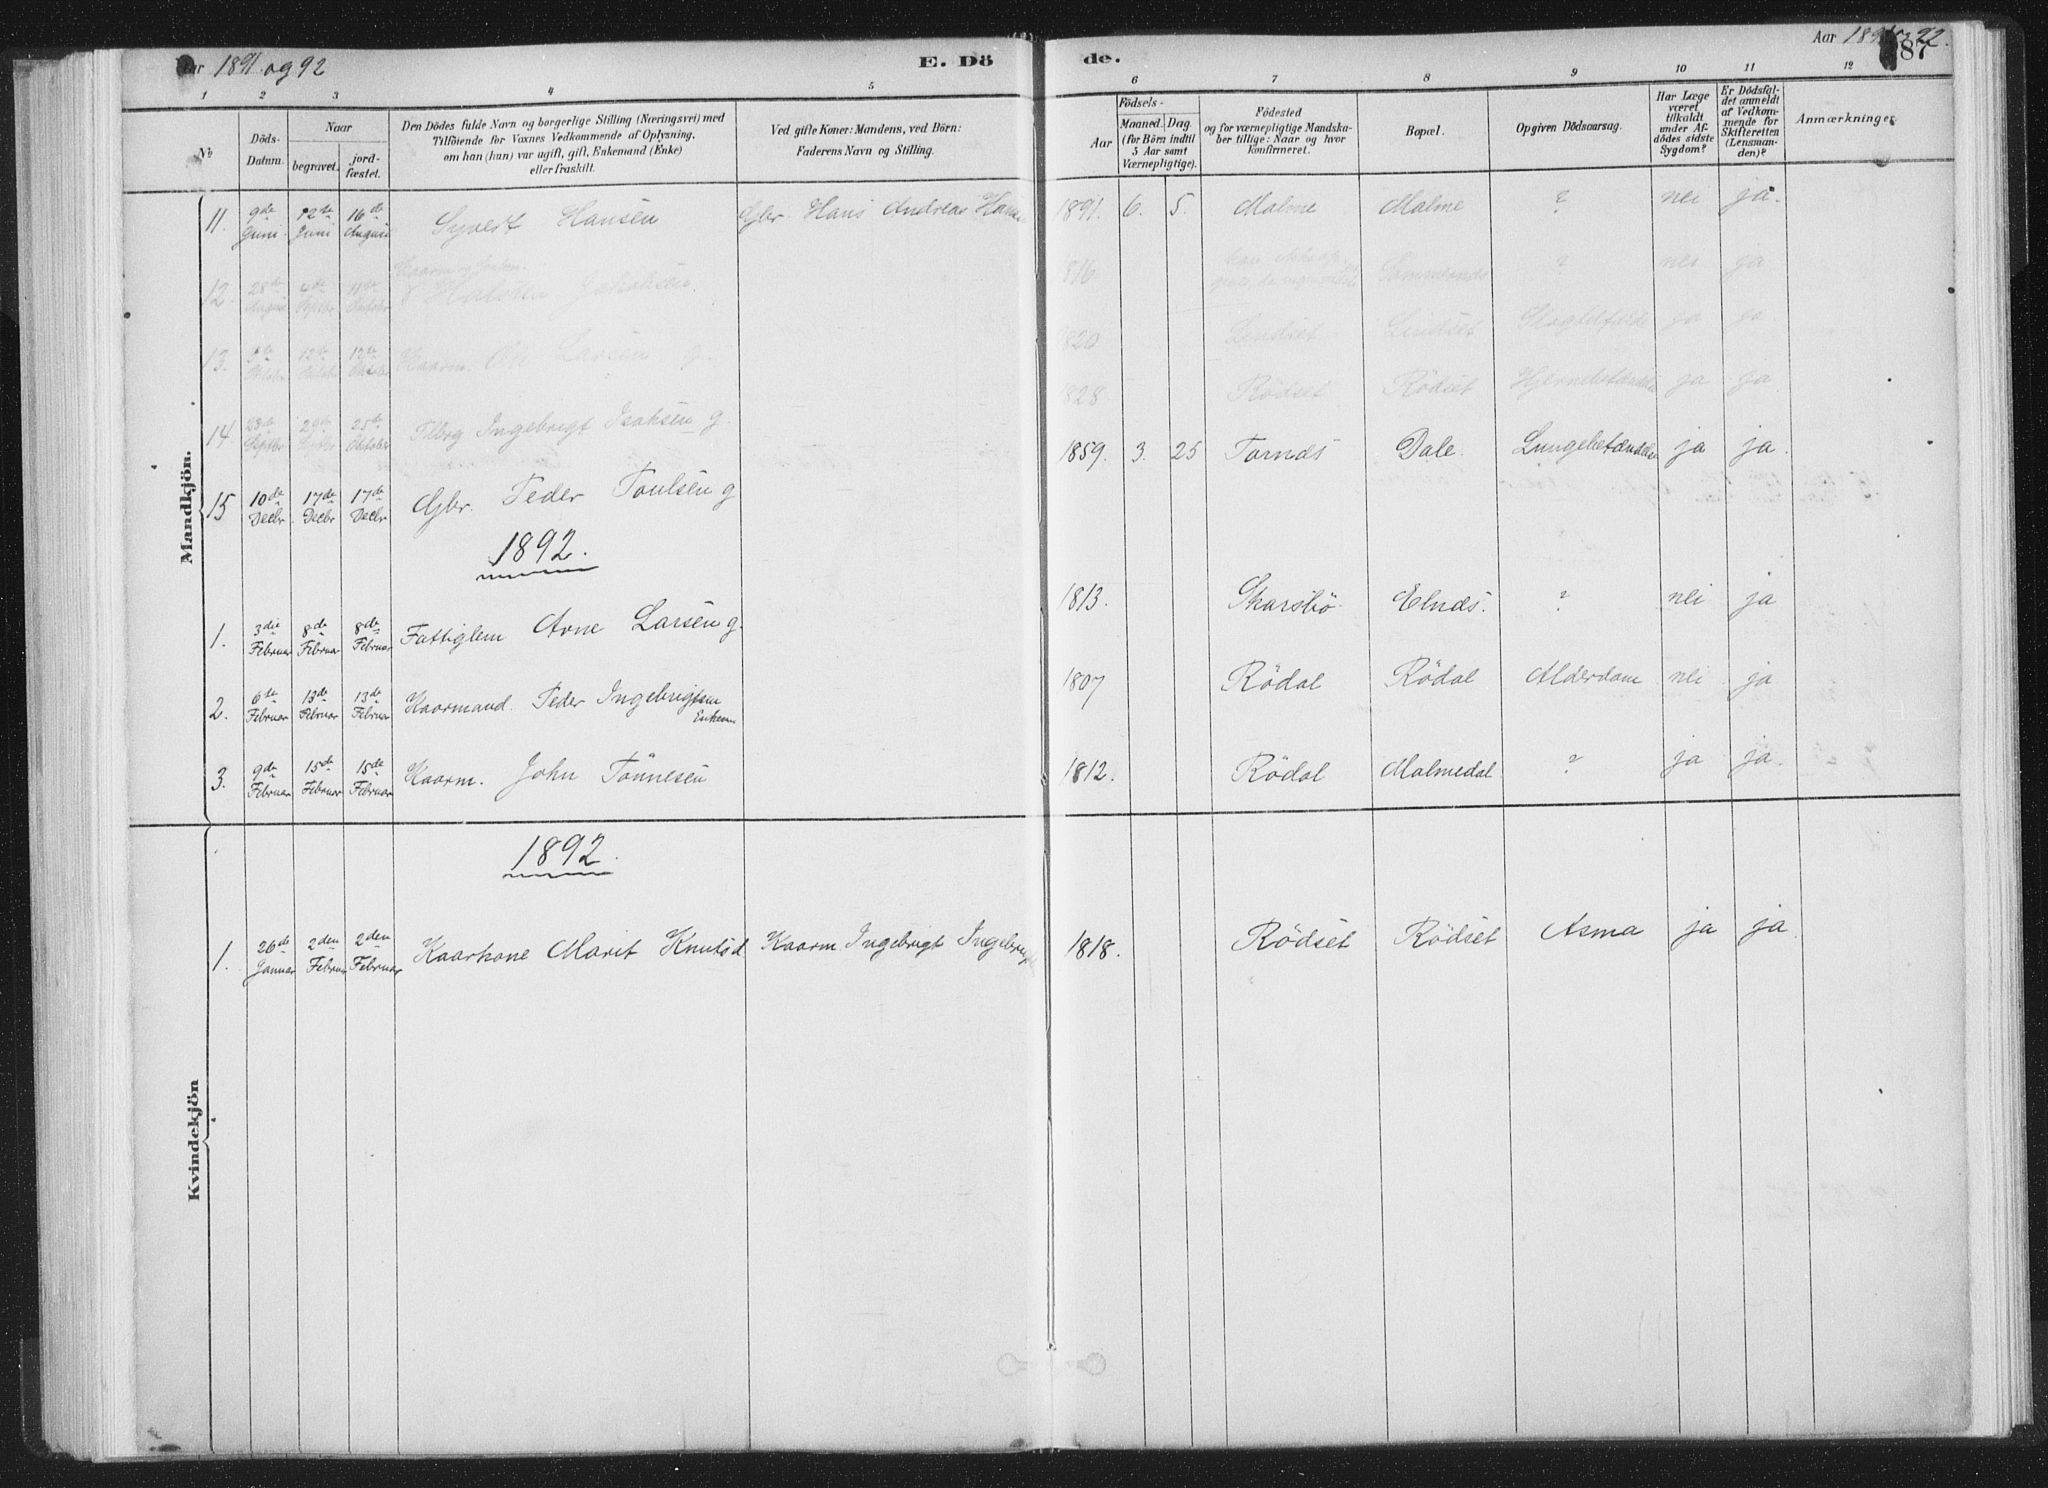 Aar 1891 og 92
E. Dö
de.
Aar 1891 og 92.
187
1 2 3 4 5 6 7 8 9 10 11 12
No
Döds-Datum.
Naar
begravet.
jord-fæstet.
Den Dödes fulde Navn og borgerlige Stilling (Næringsvei) med
Tilföiende for Voxnes Vedkommende af Oplysning,
om han (hun) var ugift, gift, Enkemand (Enke)
eller fraskilt.
Ved gifte Koner: Mandens, ved Börn:
Faderens Navn og Stilling.
Födsels-
Aar
Maaned. Dag
(for Börn indtil
5 Aar samt
Værnepligtige).
Födested
og for værnepligtige Mandska-
ber tillige: Naar og hvor
konfirmeret.
Bopæl.
Opgiven Dödsaarsag.
Har Læge
været
tilkaldt
under Af-
dödes sidste
Sygdom?
Er Dödsfal-
det anmeldt
af Vedkom-
mende for
Skifteretten
(Lensman-
den)?
Anmærkninger.
Mandkjön.
11. 9de Juni. 12te Juni 16de August Syvert Hansen Gbr. Hans Andreas Hansen 1891. 6. 5. Malme Malme ? nei ja.
12. 28de August 4de Septbr 11te Oktober Kaarm Halsten Jakobsen. 1816. ? nei ja
13. 5te Oktober 12te Oktober 12te Oktober Kaarm. Ole Larsen g. 1820 Lindset Lindset ja ja
14 23de Septbr 29de Septbr 25de Oktober Ingebrigt Isaksen g. 1828 Rödset Rödset Hjernebetændelse ja ja
15 10de Decbr. 17de Decbr 17de Decbr Gbr. Peder Poulsen g 1859. 3. 25 Tornds Dale. Lungebetændelse ja ja.
1892.
1. 3die Februar 8de Februar 8de Februar Fattiglem Arne Larsen g. 1813. Skarsbö Elnds. ? nei ja
2. 6te Februar 13de Februar 13de Februar Kaarmand. Peder Ingebrigtsen Enkem 1807 Rödal Rödal Alderdom nei ja
3. 9de Februar 15de Februar 15de Februar Kaarm. John Tönnesen 1812. Rödal Malmedal ? ja ja.
Kvindekjön
1892.
1. 26de Januar 2den Februar 2den Februar Kaarkone Marit Knutsd Kaarm. Ingebrigt Ingebrigts 1818. Rödset Rödset Asma ja ja